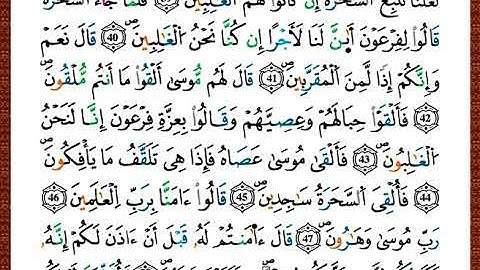 لَعَلَّنَا نَتَّبِعُ السَّحَرَةَ إِن كَانُواْ هُمُ الْغَٰلِبِينَ فَلَمَّا جَآءَ السَّحَرَةُ
قَالُواْ لِفِرْعَوْنَ أَئِنَّ لَنَا لَأَجْرًا إِن كُنَّا نَحْنُ الْغَٰلِبِينَ 40 قَالَ نَعَمْ
وَإِنَّكُمْ إِذًا لَّمِنَ الْمُقَرَّبِينَ 41 قَالَ لَهُم مُّوسَىٰ أَلْقُواْ مَا أَنتُم مُّلْقُونَ
42 فَأَلْقَوْاْ حِبَالَهُمْ وَعِصِيَّهُمْ وَقَالُواْ بِعِزَّةِ فِرْعَوْنَ إِنَّا لَنَحْنُ
الْغَٰلِبُونَ 43 فَأَلْقَىٰ مُوسَىٰ عَصَاهُ فَإِذَا هِىَ تَلَقَّفُ مَا يَأْفِكُونَ
44 فَأُلْقِىَ السَّحَرَةُ سَٰجِدِينَ 45 قَالُواْ ءَامَنَّا بِرَبِّ الْعَٰلَمِينَ 46
رَبِّ مُوسَىٰ وَهَٰرُونَ 47 قَالَ ءَا۬مَنتُمْ لَهُۥ قَبْلَ أَنْ ءَاذَنَ لَكُمْ إِنَّهُۥ